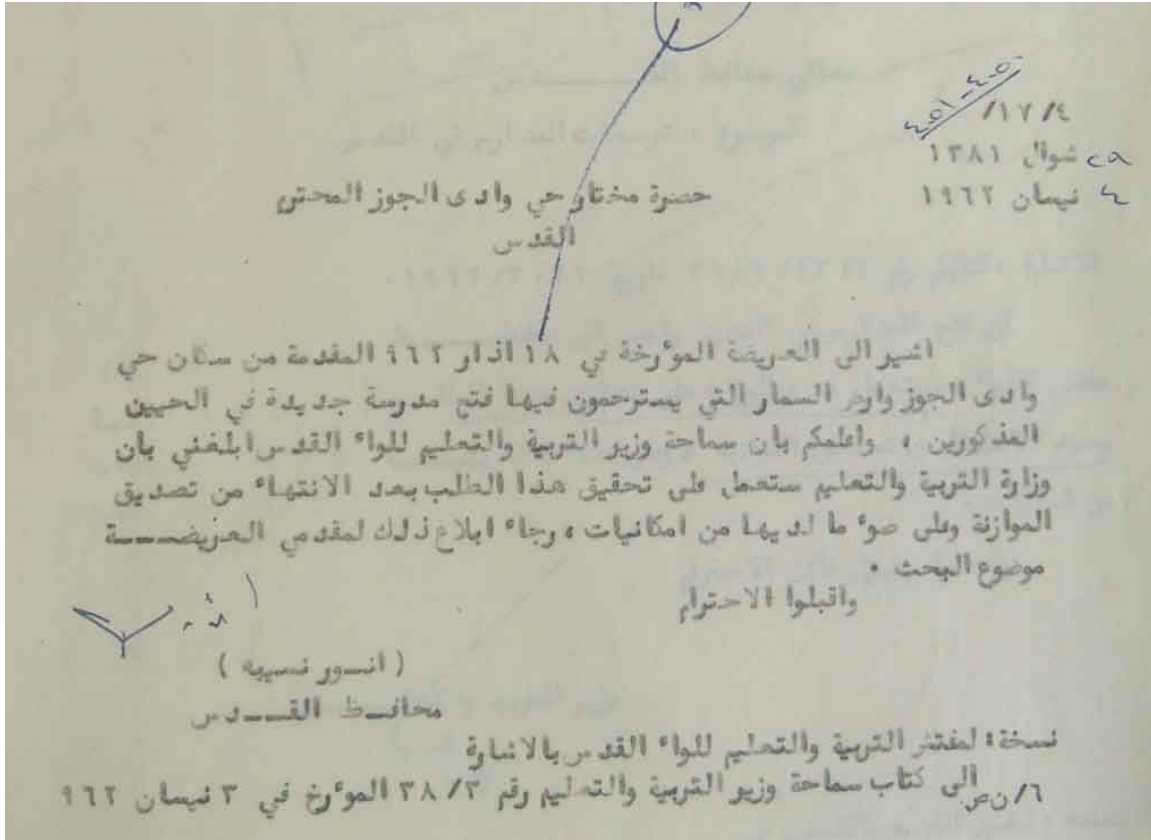 ٤/١٧/
٢٩ شوال ١٣٨١
٤ نيسان ١٩٦٢
حضرة مختار حي وادى الجوز المحترم
القدس
اشير الى العريضة الموٴرخة في ١٨ اذار ٩٦٢ المقدمة من سكان حي
وادى الجوز وارض السمار التي يسترحمون فيها فتح مدرسة جديدة في الحيين
المذكورين ، واعلمكم بان سماحة وزير التربية والتعليم للواء القدس ابلغني بأن
وزارة التربية والتعليم ستعمل على تحقيق هذا الطلب بعد الانتهاء من تصديق
الموازنة وعلى ضوء ما لديها من امكانيات ، رجاء ابلاغ ذلك لمقدمي العريضـــة
موضوع البحث .
واقبلوا الاحترام
( انــور نسيبه )
محافــظ القــدس
نسخة : لمفتش التربية والتعليم للواء القدس بالاشارة
الى كتاب سماحة وزير التربية والتعليم رقم ٣٨/٣ الموٴرخ في ٣ نيسان ٩٦٢